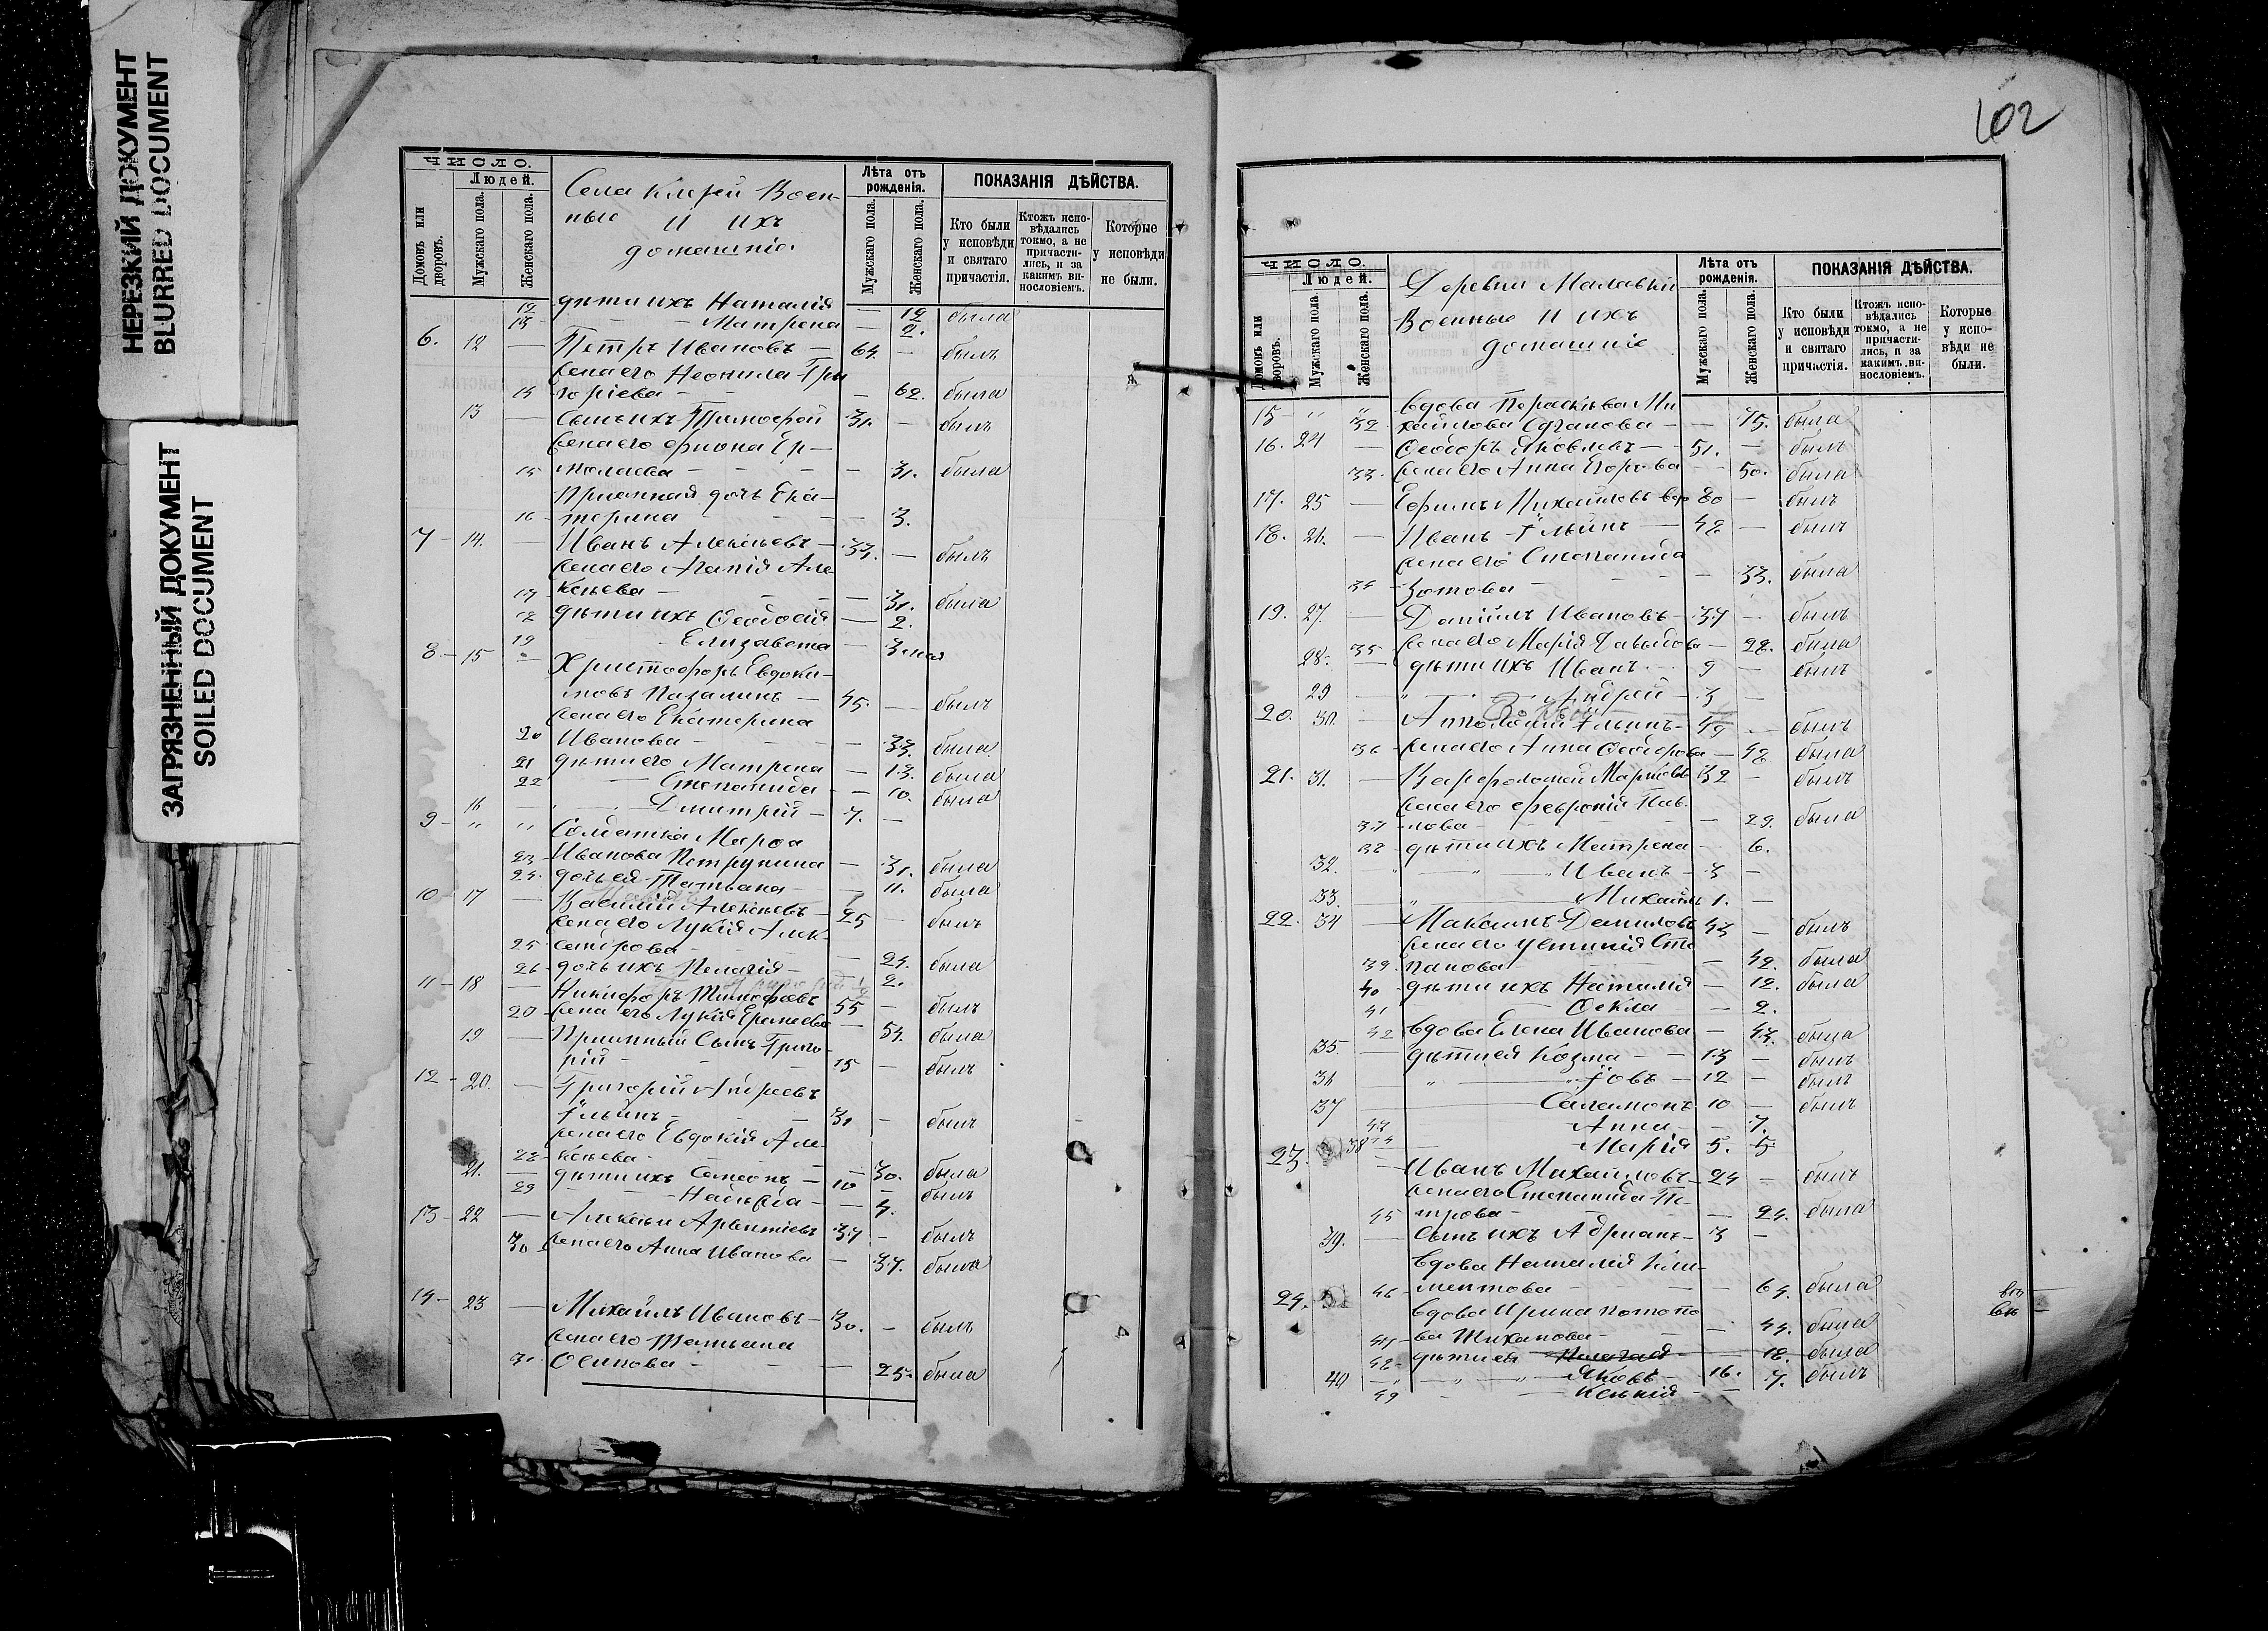 НЕРЕЗКИЙ ДОКУМЕНТ
BLURRED DOCUMENT
ЗАГРЯЗНЕННЫЙ ДОКУМЕНТ
SOILED DOCUMENT
ЧИСЛО.
Людей.
Домовъ или дворовъ.
Мужскаго пола.
Женскаго пола.
Села Воен-
ные и ихъ
домашніе.
Лѣта отъ рожденія.
Мужскаго пола.
Женскаго пола.
ПОКАЗАНІЯ ДѢЙСТВА.
Кто были у исповѣди и святаго причастія.
Ктожъ испо-вѣдались токмо, а не причасти-лись, и за какимъ ви-нословіемъ.
Которые у исповѣди не были.
12 дѣти ихъ Наталія — 12 была
13 Матрена — 2.
6. 12 — Петръ Ивановъ — 64 — былъ
жена его Неонила Гри
14 горіева — — 62. была
13 — Сынъ ихъ Тимофей 31. — былъ
жена его Ер-
15 молаева — — 31. была
Пріемная дочь Ека-
16 терина — — 3.
7 — 14. — Иванъ Алексѣевъ — 33. — былъ
жена его Агапія Але-
17 ксѣева — — 31. была
18 дѣти ихъ Ѳеодосія — 2.
19 Елизавета —
8 — 15 — Христофоръ Евдоки-
мовъ — 45. — былъ
жена его Екатерина
20 Иванова — — 33. была
21 дѣти его Матрена — 13. была
22 — Степанида — 10. была
16 — Дмитрій — 7. —
9 — " " Солдатка Марѳа
23 Иванова Петрунина — 31. была
24. дочь ея Татьяна — 11. была
10 — 17 — Василій Алексѣевъ — 25 — былъ
жена его Лукія Алек-
25 сандрова — — 24. была
26 дочь ихъ Пелагія — 2.
11 — 18 — Никифоръ Тимофеевъ 55 — былъ
жена его Лукія Еремеева — 54. была
19 — Пріемный Сынъ Григо-
рій — 15 — былъ
12 — 20. — Григорій Андреевъ
Ильинъ — 31 — былъ
жена его Евдокія Але-
28 ксѣева — — 30. была
21. — дѣти ихъ — 10 — былъ
29 — — 4.
13 — 22 — Алексѣй 37 — былъ
30 жена его Анна Иванова — 37. была
14 — 23 — Михаилъ Ивановъ — 30. — былъ
жена его Татьяна
31 Осипова — — 25. была
102
ЧИСЛО.
Людей.
Домовъ или дворовъ.
Мужскаго пола.
Женскаго пола.
Деревни
Военные и ихъ
домашніе
Лѣта отъ рожденія.
Мужскаго пола.
Женскаго пола.
ПОКАЗАНІЯ ДѢЙСТВА.
Кто были у исповѣди и святаго причастія.
Ктожъ испо-вѣдались токмо, а не причасти-лись, и за какимъ ви-нословіемъ.
Которые у испо-вѣди не были.
15 — " " Вдова Параскева Ми
32 хайлова — 45. была
16. 24 — Ѳеодоръ Яковлевъ — 51. — былъ
33. жена его Анна Егорова — 50. была
17. 25 — Ефимъ Михайловъ 80 — былъ
18. 26. — Иванъ Ильинъ — 48 — былъ
жена его Степанида
34 Зотова — — 33. была
19. 27. — Даніилъ Ивановъ — 37 — былъ
35 жена его Марія Давыдова — 28. была
28. — дѣти ихъ Иванъ — 9 — былъ
29 — " — Андрей — 3 —
20. 30. — Ильинъ — 49 — былъ
36 жена его Анна Ѳеодорова — 48 была
21. 31. — Варфоломей Марковъ 32 — былъ
жена его Февронія Пав-
37 лова — — 29. была
38 дѣти ихъ Матрена — 6.
32. " — " — Иванъ — 3 —
33. " — Михаилъ 1. —
22. 34 — Максимъ Даниловъ 43 — былъ
жена его Устинія Сте
39. панова — — 42. была
40 дѣти ихъ Наталія — 12. была
41 — Ѳекла — 2.
42 Вдова Елена Иванова — 43. была
35. — дѣти ея Козма — 13 — былъ
36 — " — Іовъ — 12 — былъ
37 — Саламонъ 10 — былъ
43 — Анна — 7.
44 — Марія 5.
23. 38 — Иванъ Михайловъ — 24 — былъ
жена его Степанида Пе-
45 трова — — 24. была
39. — Сынъ ихъ Адріанъ — 3 —
Вдова Наталія Кли-
46 ментова — — 64. была
24. Вдова Ирина Потапо
47 ва — — 44. была
48 дѣти ея Пелагія — 18. была
40 — " — Яковъ — 16. былъ
49 — Ксенія — 7.